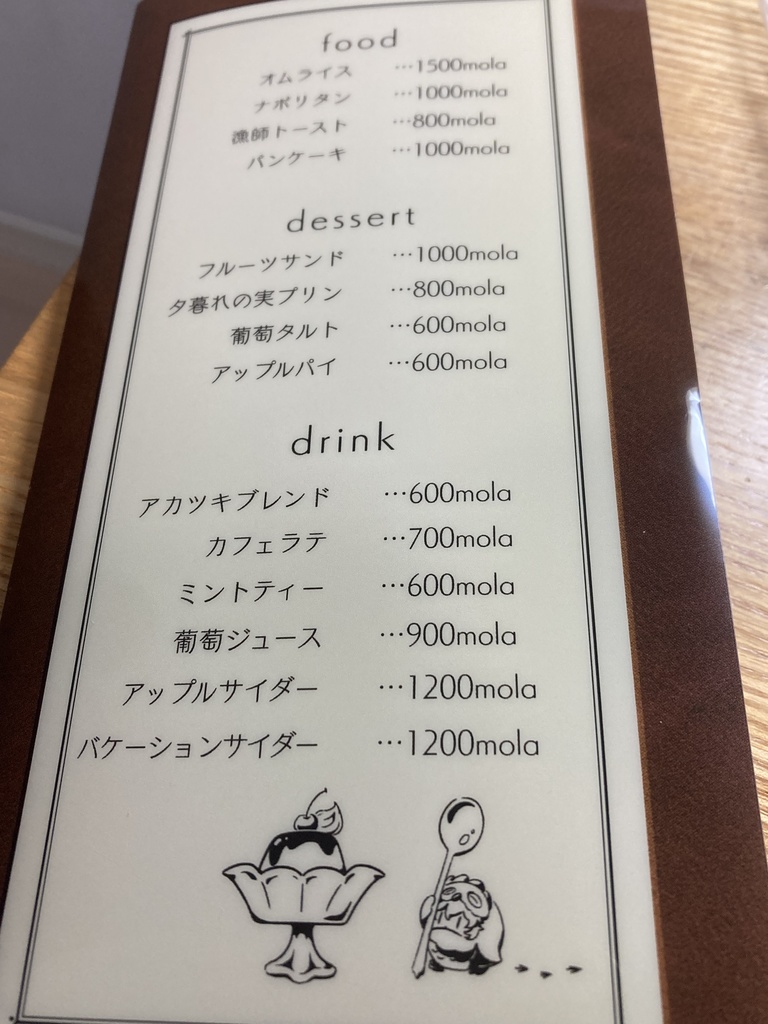 food
オムライス …1500mola
ナポリタン …1000mola
漁師トースト …800mola
パンケーキ …1000mola
dessert
フルーツサンド …1000mola
夕暮れの実プリン …800mola
葡萄タルト …600mola
アップルパイ …600mola
drink
アカツキブレンド …600mola
カフェラテ …700mola
ミントティー …600mola
葡萄ジュース …900mola
アップルサイダー …1200mola
バケーションサイダー …1200mola